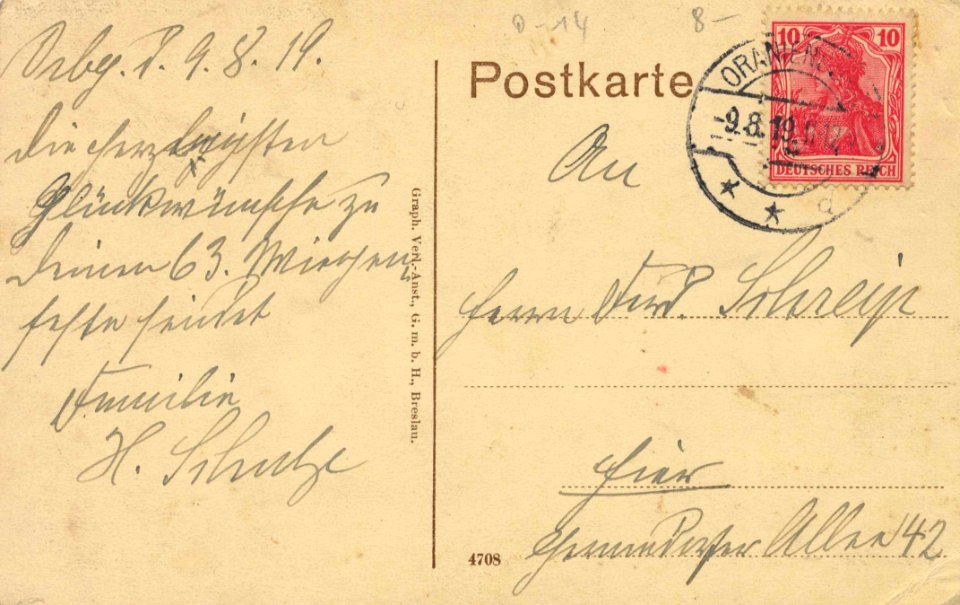 Orbg. d. 9.8.19.
Die herzlichsten
Glückwünsche zu
deinem 63. Wiegen
feste sendet
Familie
H. Schulze
Graph. Verl.-Anst., G. m. b. H., Breslau.
D-14
8-
Postkarte
ORANIEN
-9.8.19.
* * d
10 10
DEUTSCHES REICH
An
Herrn Ferd. Schreip
hier
Germendorfer Allee 42
4708